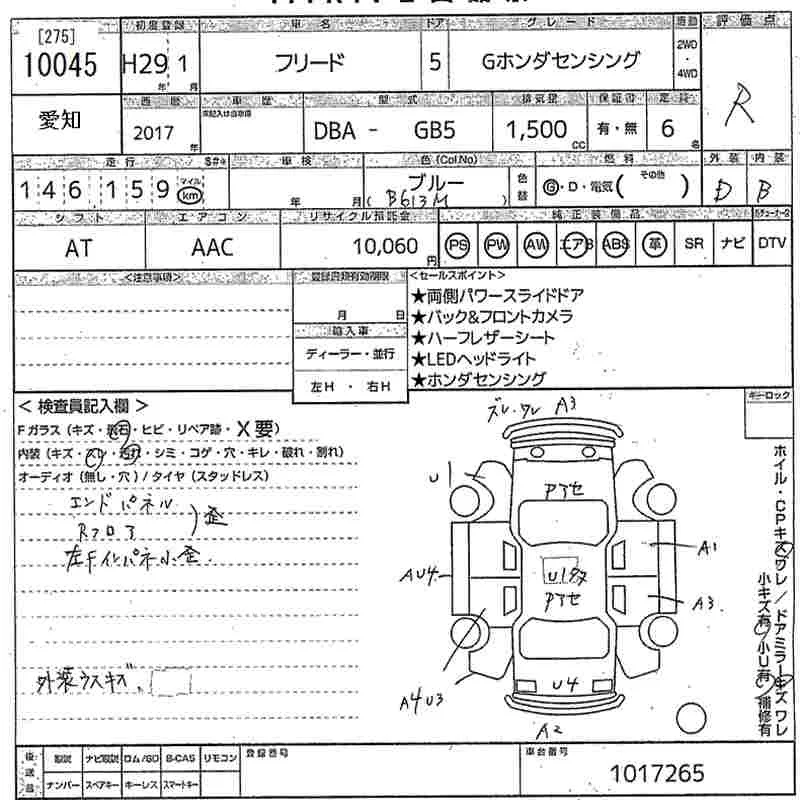 [275]
10045
初度登録
H29 1
年 月
車名
フリード
ドア
5
グレード
Gホンダセンシング
駆動
2WD
・
4WD
評価点
R
愛知
西暦
2017
年
車歴
未記入は自家用
型式
DBA - GB5
排気量
1,500
CC
保証書
有・無
定員
6
名
走行
146,159
マイル
km
S#*
車検
年 月
色(Col.No)
ブルー
( B613M )
色替
燃料
G・D・電気( その他 )
外装
D
内装
B
シフト
AT
エアコン
AAC
リサイクル預託金
10,060
円
純正装備品
PS PW AW エアB ABS 革 SR ナビ DTV
<注意事項>
登録書類有効期限
月 日
輸入車
ディーラー・並行
左H ・ 右H
<セールスポイント>
★両側パワースライドドア
★バック&フロントカメラ
★ハーフレザーシート
★LEDヘッドライト
★ホンダセンシング
< 検査員記入欄 >
Fガラス(キズ・飛石・ヒビ・リペア跡・X要)
内装(キズ・スリ・汚れ・シミ・コゲ・穴・キレ・破れ・割れ)
オーディオ(無し・穴)/タイヤ(スタッドレス)
エンドパネル
Rフロア
)歪
左Fインパネ小歪.
外装ウスキズ.
キーロック
ズレ・ワレ A3
U1
アアセ
A1
AU4
U1
アアセ
A3
A4U3
U4
A2
ホイル・CPキズワレ/ドアミラーキズワレ
小キズ有 小U有 補修有
後送品
取説 ナビ取説 ロム/SD B-CAS リモコン
ナンバー スペアキー キーレス スマートキー
登録番号
車台番号
1017265